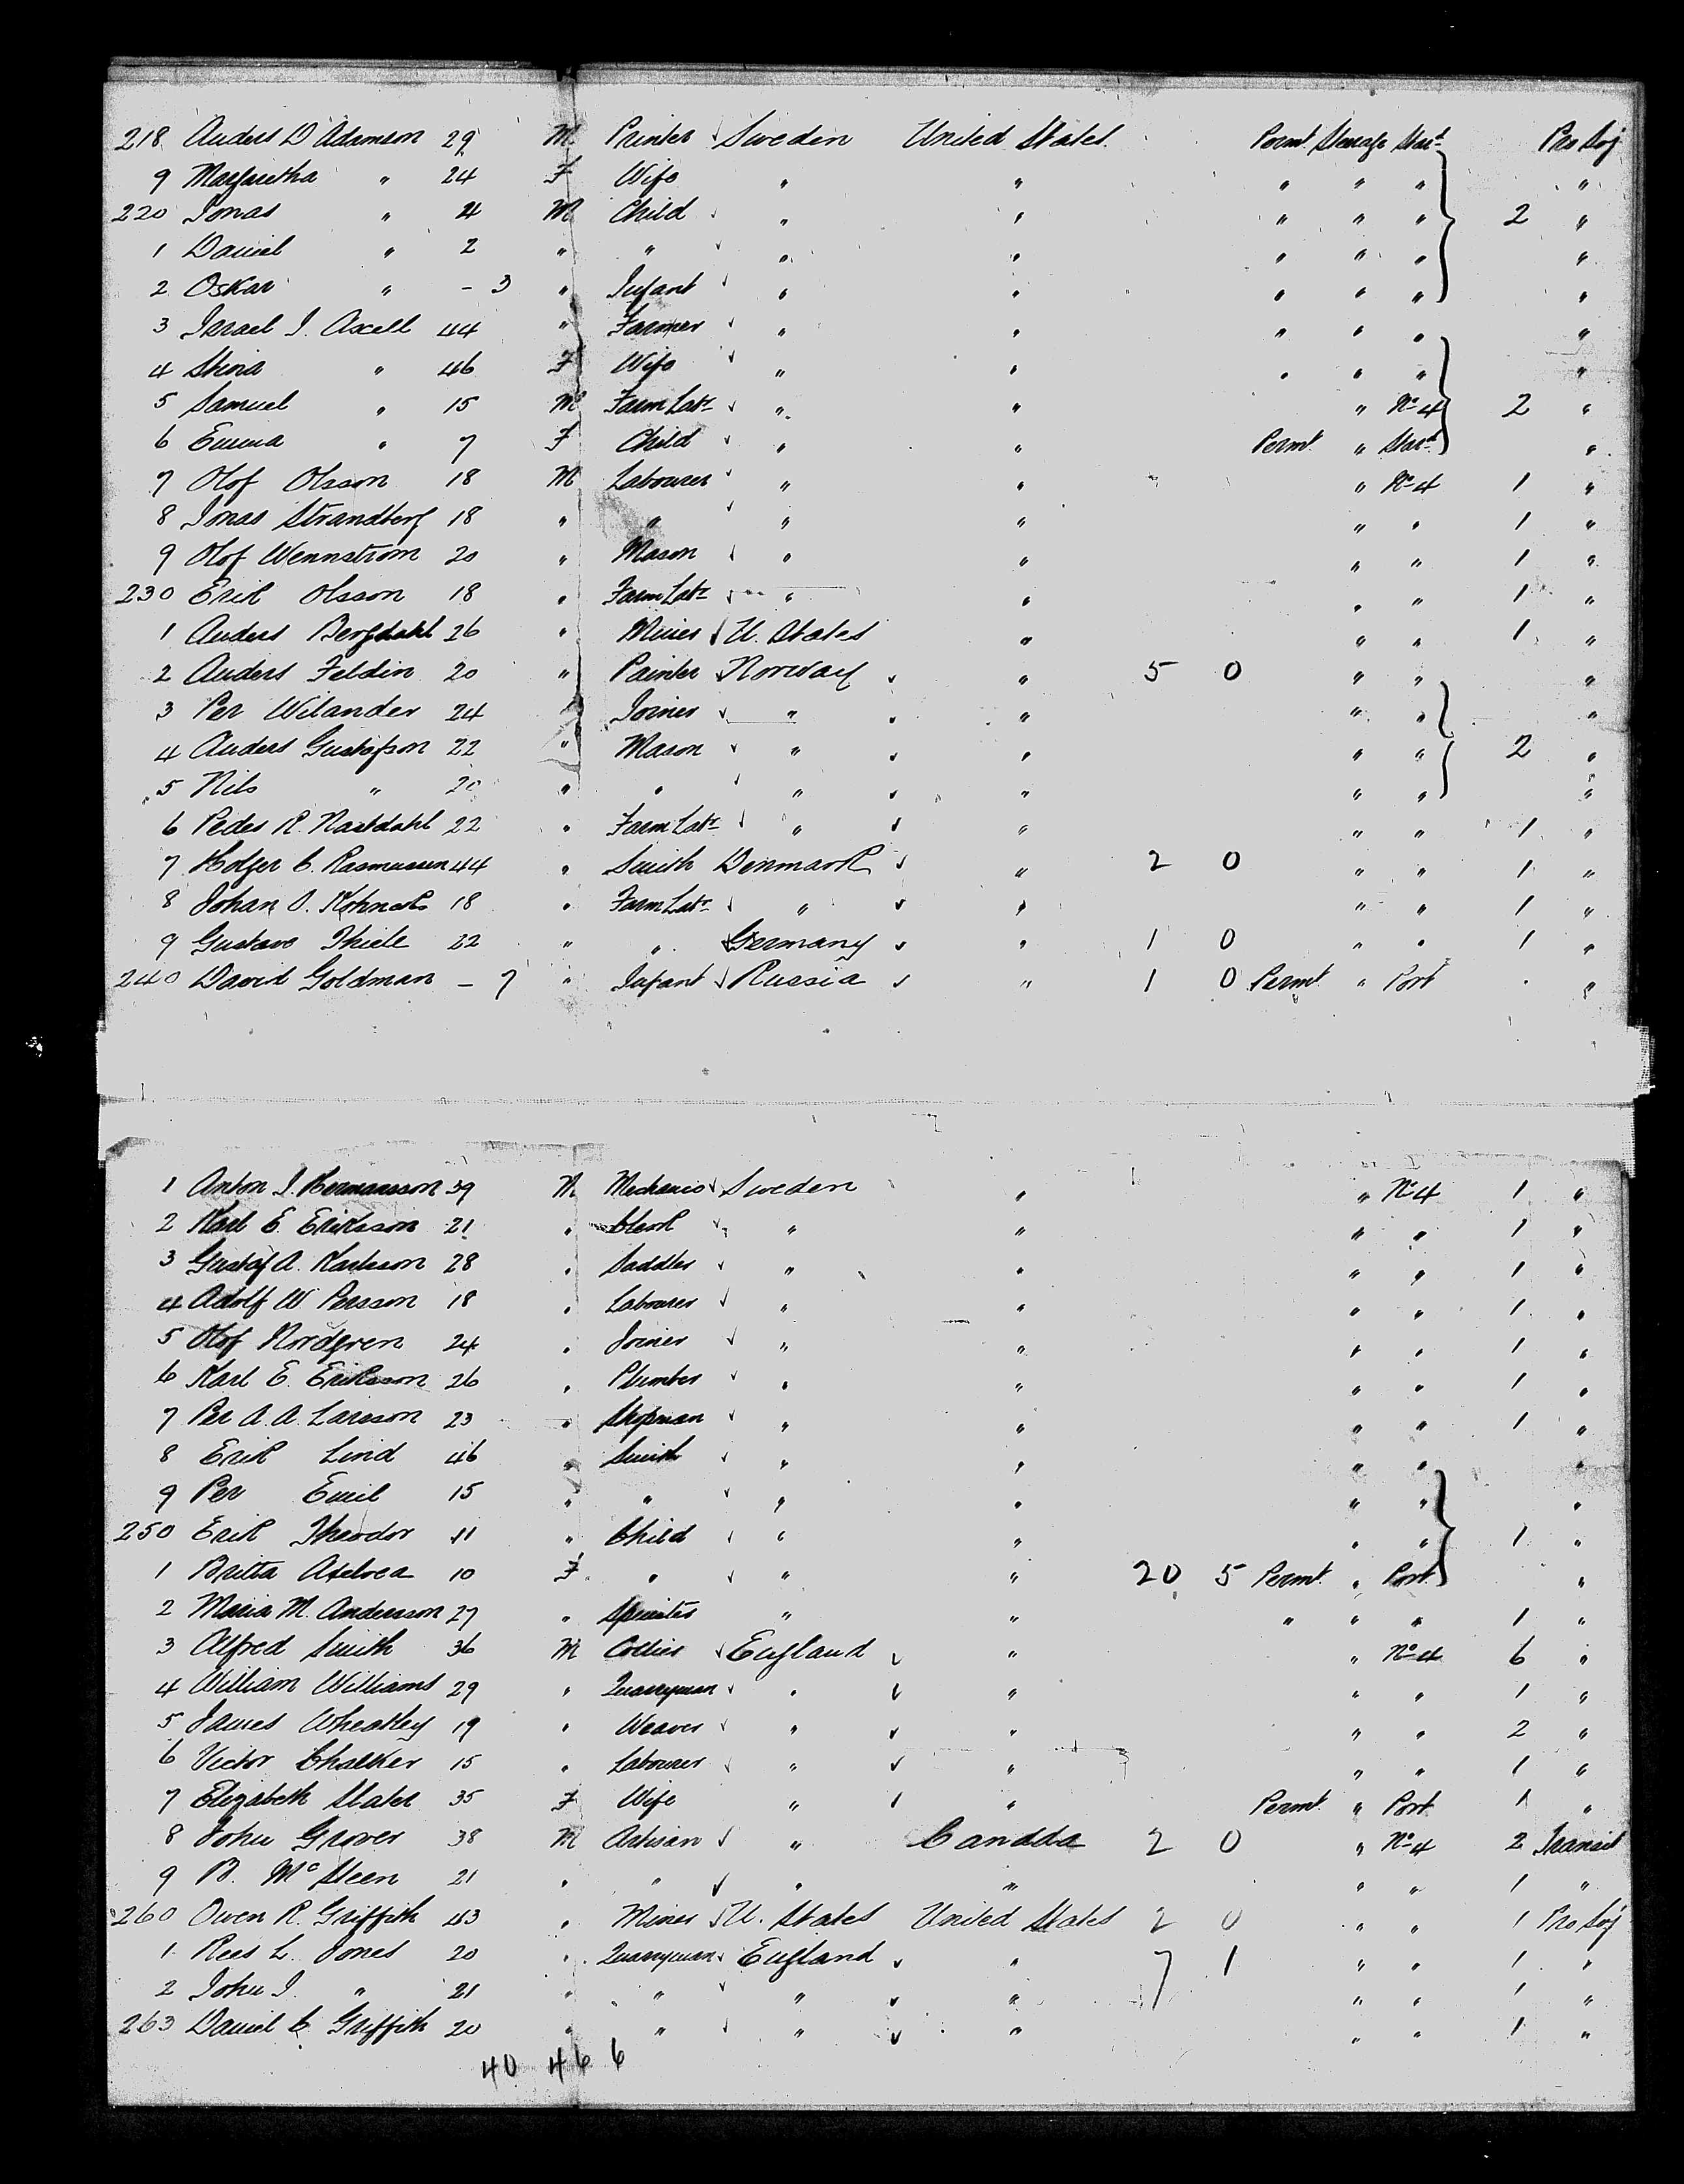 218 Anders D Adamson 29 M Printer Sweden United States Permt Steerage Star.d Pro Soj
9 Margaretha " 24 F Wife " " " " " "
220 Jonas " 4 M Child " " " " " 2 "
1 Daniel " 2 " " " " " " " "
2 Oskar " - 3 " Infant " " " " " "
3 Israel J. Axell 44 " Farmer " " " " " "
4 Stina " 46 F Wife " " " " " "
5 Samuel " 15 M Farm Labr " " " No 4 2 "
6 Emma " 7 F Child " " Permt " Star.d "
7 Olof Olsson 18 M Labourer " " " No 4 1 "
8 Jonas Strandberg 18 " " " " " " 1 "
9 Olof Wennstrom 20 " Mason " " " " 1 "
230 Erik Olsson 18 " Farm Labr " " " " 1 "
1 Anders Bergdahl 26 " Miner U. States " " " 1 "
2 Anders Feldin 20 " Painter Norway " 5 0 " " "
3 Per Wilander 24 " Joiner " " " " "
4 Anders Gustafson 22 " Mason " " " " 2 "
5 Nils " 20 " " " " " " "
6 Peder R. 22 " Farm Labr " " " " 1 "
7 Holger C. Rasmussen 44 " Smith Denmark " 2 0 " " 1 "
8 Johan 18 " Farm Labr " " " " 1 "
9 Gustave Thiele 22 " " Germany " 1 0 " " 1 "
240 David Goldman - 7 " Infant Russia " 1 0 Permt " Port "
1 Anton J. Hermansson 39 M Mechanic Sweden " " No 4 1 "
2 Karl E. Eriksson 21 " Clerk " " " " 1 "
3 Gustaf A. Karlsson 28 " Saddler " " " " 1 "
4 Adolf W Persson 18 " Labourer " " " " 1 "
5 Olof Nordgren 24 " Joiner " " " " 1 "
6 Karl E. Eriksson 26 " Plumber " " " " 1 "
7 Per A. A. Larsson 23 " Shopman " " " " 1 "
8 Erik Lind 46 " Smith " " " " "
9 Per Emil 15 " " " " " " "
250 Erik Theodor 11 " Child " " " " 1 "
1 Britta 10 F " " " 20 5 Permt " Port "
2 Maria M. Andersson 27 " Spinster " " " " " 1 "
3 Alfred Smith 36 M Collier England " " No 4 6 "
4 William Williams 29 " Quarryman " " " " 1 "
5 James Wheatley 19 " Weaver " " " " 2 "
6 Victor Chalker 15 " Labourer " " " " 1 "
7 Elizabeth Slater 35 F Wife " " Permt " Port 1 "
8 John Grover 38 M Artisan " Canada 2 0 " No 4 2 Transit
9 B. McSteen 21 " " " " " " 1 "
260 Owen R. Griffith 43 " Miner U. States United States 2 0 " " 1 Pro Soj
1 Rees L. Jones 20 " Quarryman England " 7 1 " " 1 "
2 John J. " 21 " " " " " " 1 "
263 Daniel C. Griffith 20 " " " " " " 1 "
40 46 6